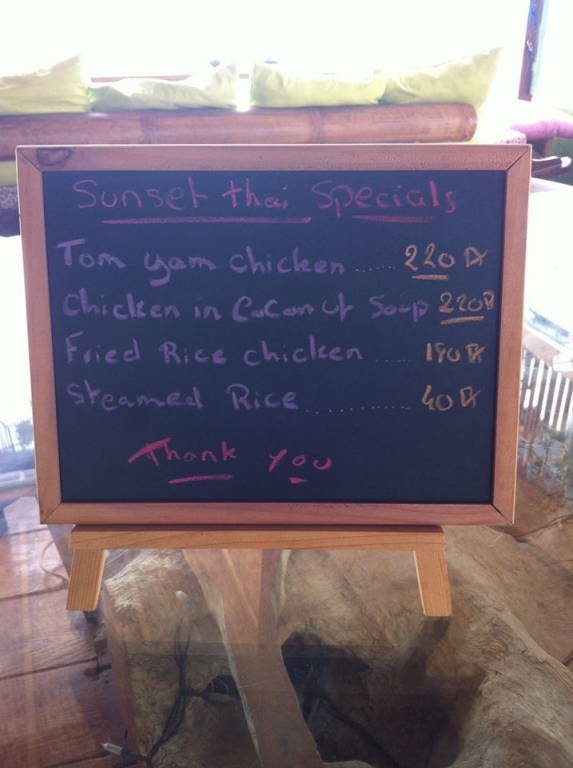 Sunset thai Specials
Tom yam chicken ...... 220 ฿
Chicken in CoConut Soup 220 ฿
Fried Rice chicken ...... 190 ฿
Steamed Rice ............ 40 ฿
Thank you